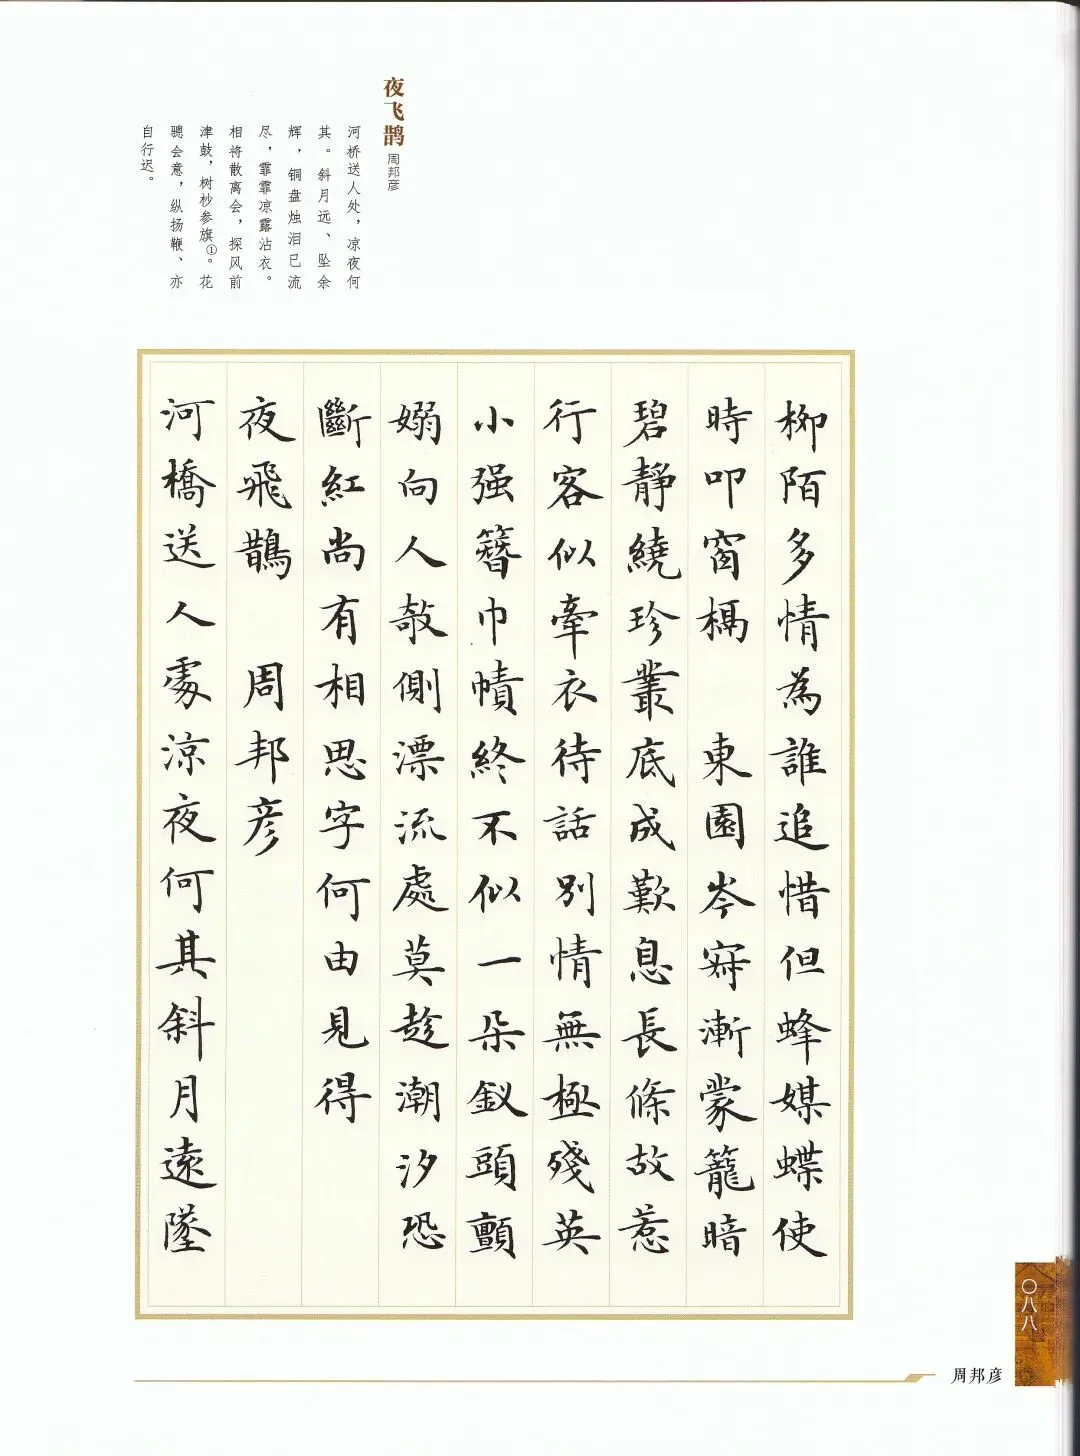 夜飞鹊
周邦彦
河桥送人处，凉夜何
其。斜月远、坠余
辉，铜盘烛泪已流
尽，霏霏凉露沾衣。
相将散离会，探风前
津鼓，树杪参旗①。花
骢会意，纵扬鞭、亦
自行迟。
柳陌多情為誰追惜但蜂媒蝶使
時叩窗槅　東園岑寂漸蒙籠暗
碧靜繞珍叢底成歎息長條故惹
行客似牽衣待話別情無極殘英
小强簪巾幘終不似一朵釵頭顫
嫋向人攲側漂流處莫趁潮汐恐
斷紅尚有相思字何由見得
夜飛鵲　周邦彦
河橋送人處涼夜何其斜月遠墜
〇八八
周邦彦